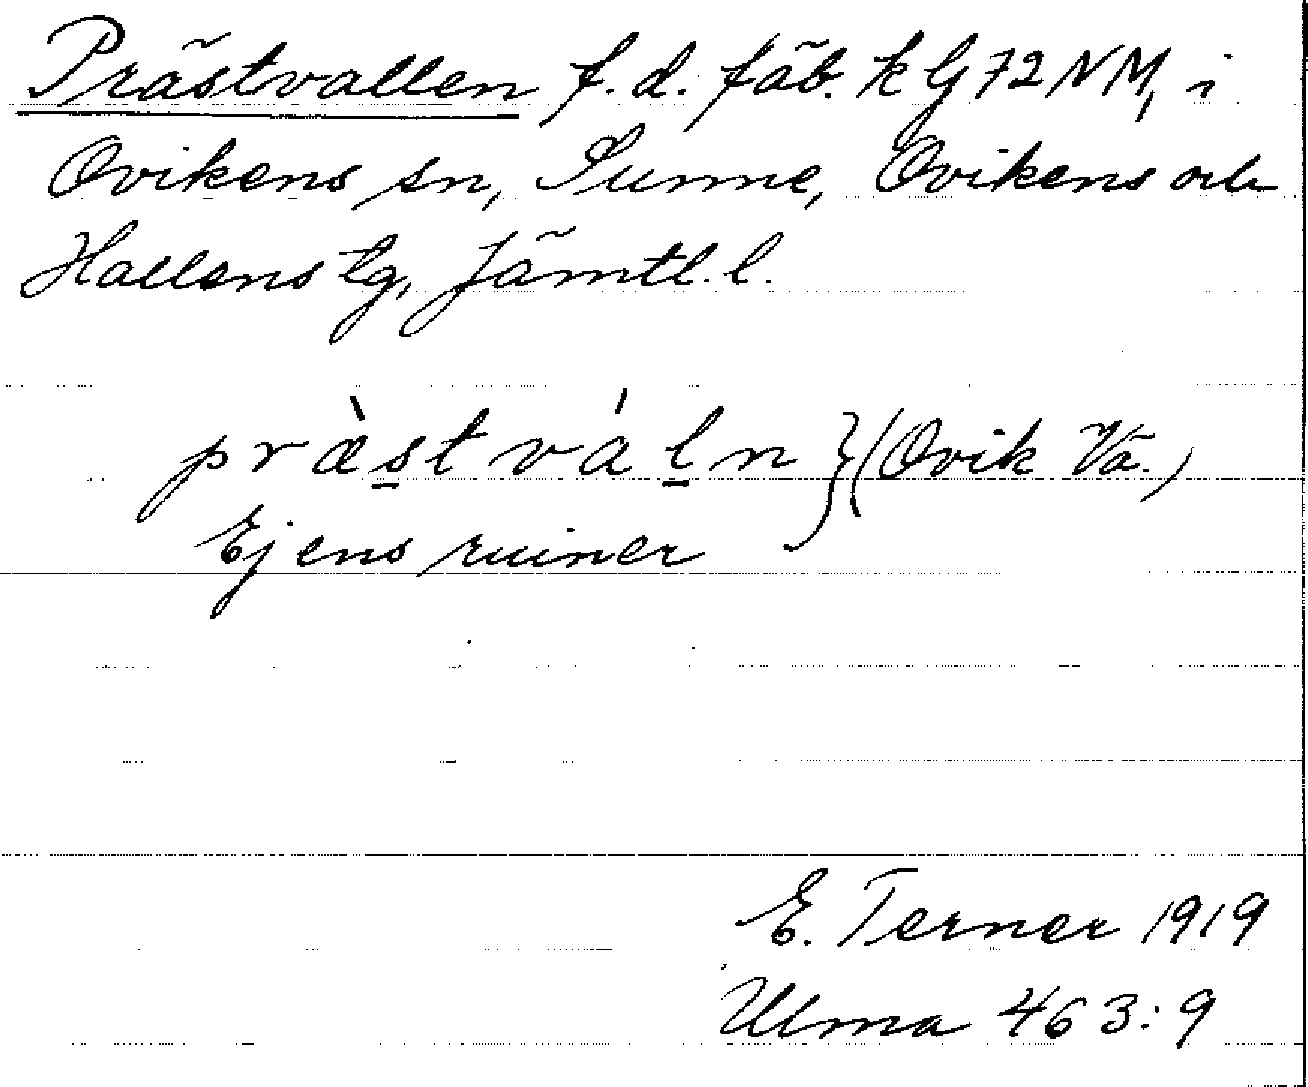 Prästvallen f.d. fäb. k G 72 NM, i
Ovikens sn, Sunne, Ovikens och
Hallens tg, Jämtl. l.
præ̀stváln } (Ovik Vä.)
Ej ens ruiner
E. Terner 1919
Ulma 463:9